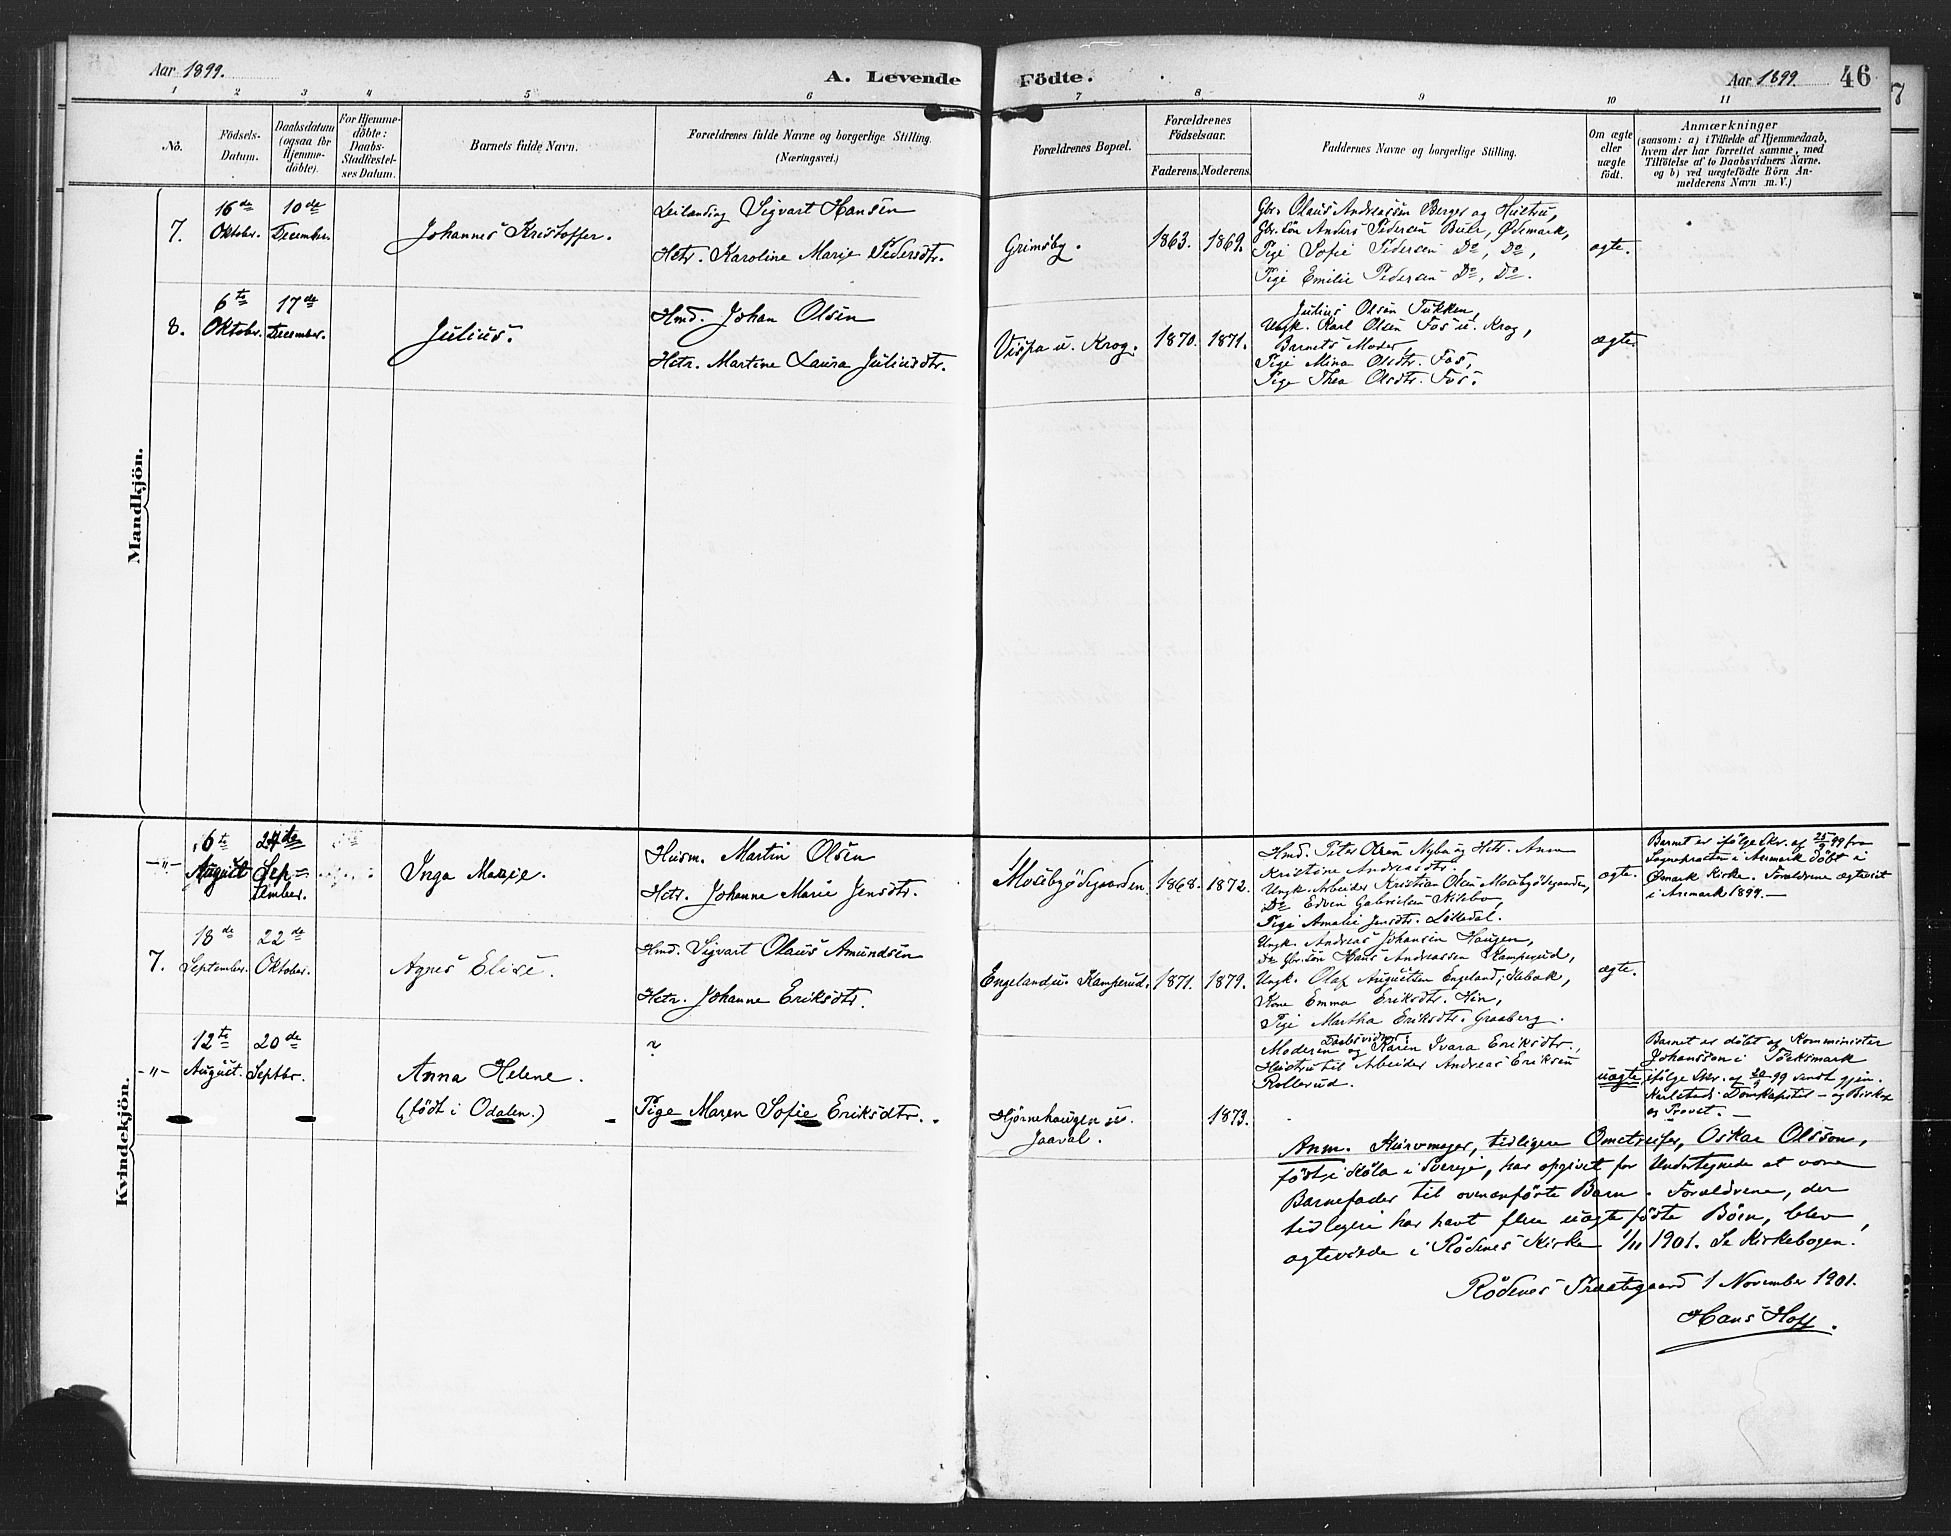 Aar 1899.
A. Levende Födte.
Aar 1899. 46
1 2 3 4 5 6 7 8 9 10 11
No.
Födsels-Datum.
Daabsdatum (ogsaa for Hjemme-döbte).
For Hjemme-döbte: Daabs-Stadfæstel-ses Datum.
Barnets fulde Navn.
Forældrenes fulde Navne og borgerlige Stilling.
(Næringsvei.)
Forældrenes Bopæl.
Forældrenes Födselsaar.
Faderens. Moderens.
Faddernes Navne og borgerlige Stilling.
Om ægte eller uægte födt.
Anmærkninger
(saasom: a) i Tilfælde af Hjemmedaab,
hvem der har forrettet samme, med
Tilföielse af to Daabsvidners Navne.
og b) ved uægtefödte Börn An-
melderens Navn m. V.)
Mandkjön.
7.
16de Oktober.
10de December.
Johannes Kristoffer.
Leilænding Sigvart Hansen
Hstr. Karoline Marie Pedersdtr.
Grimsby.
1863. 1869.
Gbr. Olaus Andreassen Berger og Hustru,
Gbr. Søn Anders Pedersen Buer, Ødemark,
Pige Sofie Pedersen Do, Do,
Pige Emilie Pedersen Do, Do.
ægte.
8.
6te Oktober.
17de December.
Julius.
Hmd. Johan Olsen
Hstr. Martine Laura Juliusdtr.
Vispa u. Krog.
1870. 1871.
Julius Olsen Tukken,
Ungk. Karl Olsen Fos u. Krog,
Barnets Moder,
Pige Mina Olsdtr. Fos,
Pige Thea Olsdtr. Fos.
ægte.
Kvindekjön.
-"-
16te August
24de September.
Inga Marie.
Husm. Martin Olsen
Hstr. Johanne Marie Jensdtr.
Mosebyødegaarden.
1868. 1872.
Hmd. Peter Olsen Nybu og Hstr. Anne
Kristine Andreasdtr.
Ungk. Arbeider Kristian Olsen Mosebyødegaarden,
Do Edvin Gabrielsen
Pige Amalie Jensdtr. Løkkedal.
ægte.
Barnet er ifølge Skr. af 25/9 99 fra
Sognepræsten i Aremark døbt i
Ømark Kirke. Forældrene ægteviet
i Aremark 1899.—
7.
18de September.
22de Oktober.
Agnes Elise.
Hmd. Sigvart Olaus Amundsen
Hstr. Johanne Eriksdtr.
Engeland u. Kamperud.
1871. 1879.
Ungk. Andreas Johansen Haugen,
Do Gbr. søn Hans Andreassen Kamperud,
Ungk. Olaf Augustsen Engeland,
Kone Emma Eriksdtr.
Pige Martha Eriksdtr. Graaberg.
ægte.
-"-
12te August.
20de Septbr.
Anna Helene.
(født i Odalen.)
?
Pige Maren Sofie Eriksdtr.
Hjørnehaugen u.
Jaaval.
1873.
Daabsvidner:
Moderen og Karen Ivara Eriksdtr.,
Hustru til Arbeider Andreas Eriksen
Rollerud.
uægte.
Barnet er døbt af Komminister
Johansson i Töcksmark
ifølge Skr. af 20/9 99 sendt gjen.
Karlstads Domkapitel – og Biskop
og Provst. —
Anm. Kurvmager, tidligere Omstreifer, Oskar Olsson,
født i Köla i Sverige, har opgivet for Undertegnede at være
Barnefader til ovenanførte Barn. Forældrene, der
tidligere har havt flere uægte fødte Børn, blev
ægteviede i Rødenes Kirke 1/11 1901. Se Kirkebogen!
Rødenes Præstegaard 1 November 1901.
Hans Hoff.